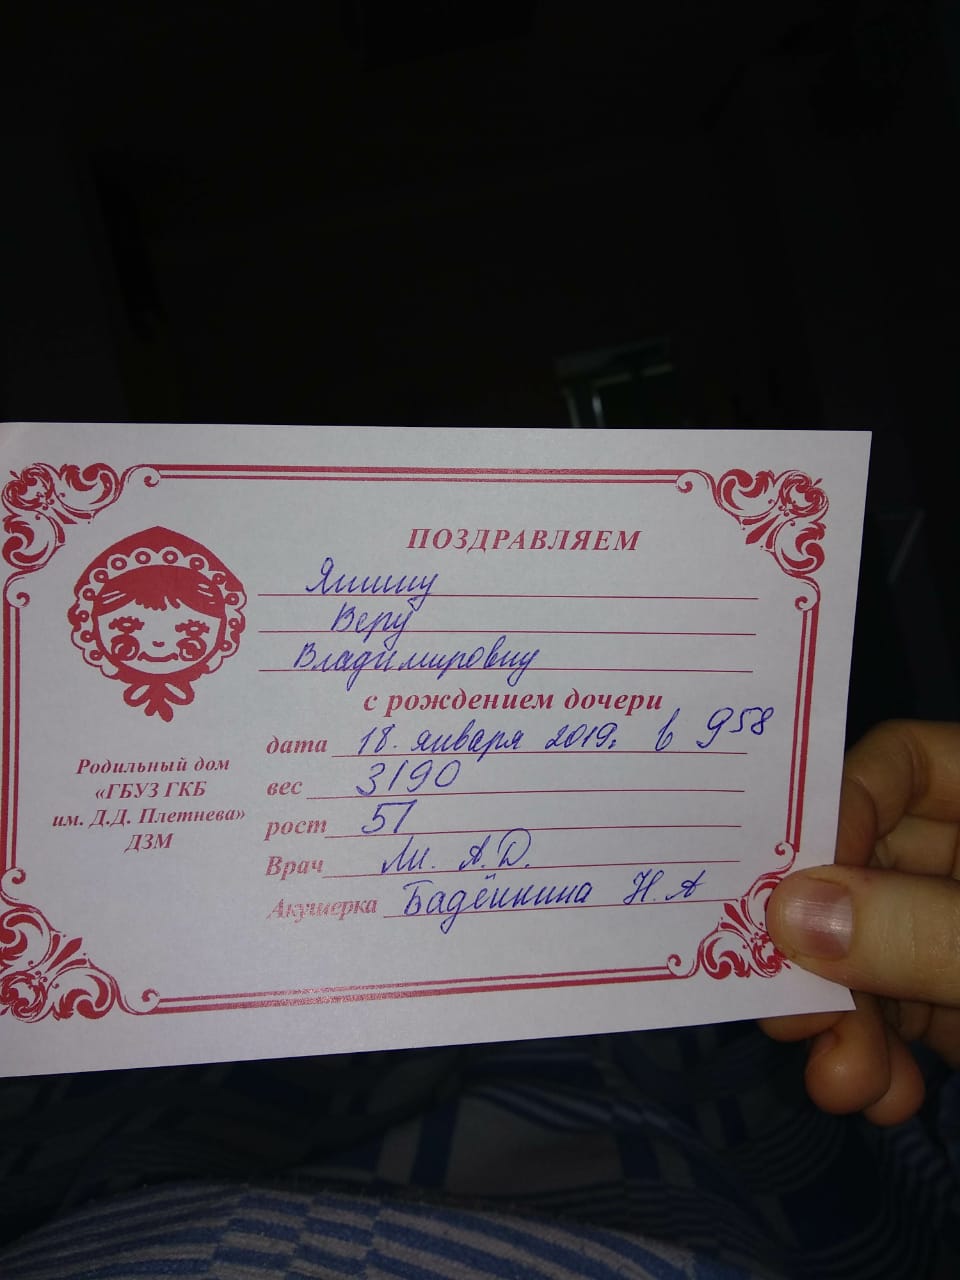 ПОЗДРАВЛЯЕМ
Яшину
Веру
Владимировну
с рождением дочери
дата 18. января 2019г. в 9 58
вес 3190
рост 51
Врач Ли. А.Д.
Акушерка Н. А
Родильный дом
«ГБУЗ ГКБ
им. Д.Д. Плетнева»
ДЗМ